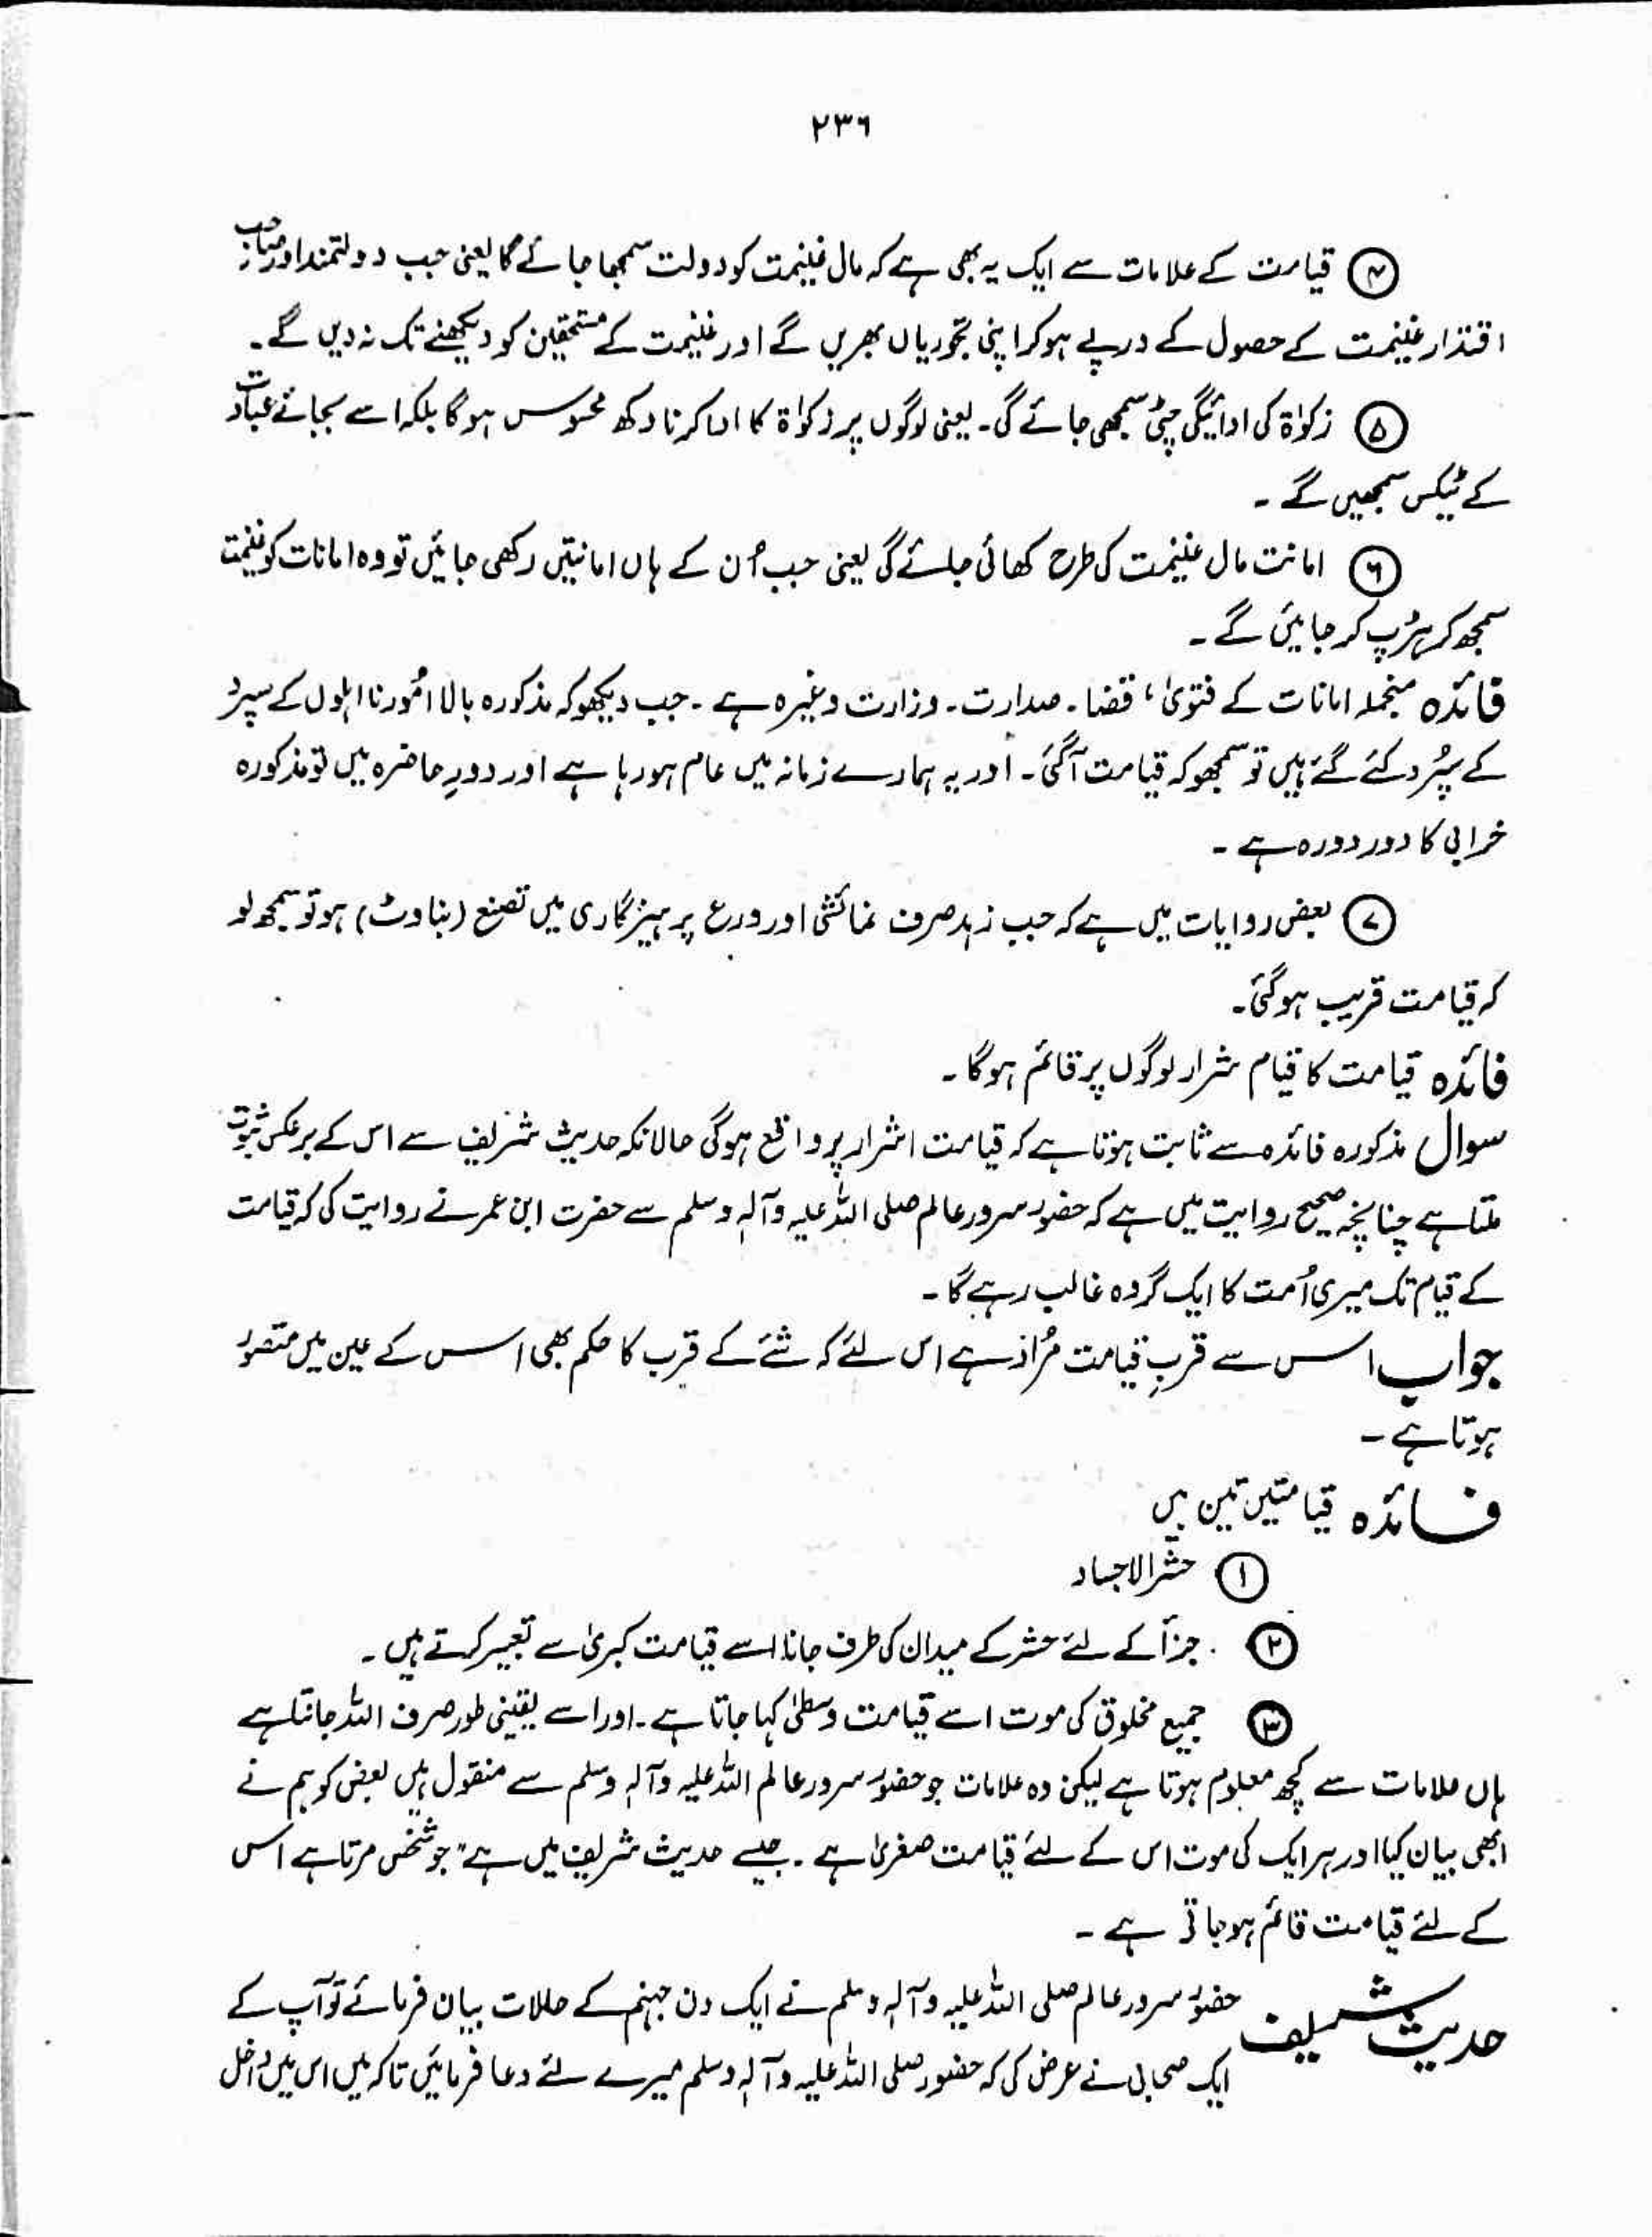 ۲۳۶
④ قیامت کے علامات سے ایک یہ بھی ہے کہ مال غنیمت کو دولت سمجھا جائے گا یعنی جب دولتمند اور صاحب
اقتدار غنیمت کے حصول کے درپے ہو کر اپنی تجوریاں بھریں گے اور غنیمت کے مستحقین کو دیکھنے تک نہ دیں گے۔
⑤ زکوٰۃ کی ادائیگی چٹی سمجھی جائے گی۔ یعنی لوگوں پر زکوٰۃ کا ادا کرنا دکھ محسوس ہوگا بلکہ اسے بجائے عبادت
کے ٹیکس سمجھیں گے ۔
⑥ امانت مال غنیمت کی طرح کھائی جائے گی یعنی جب اُن کے ہاں امانتیں رکھی جائیں تو وہ امانات کو غنیمت
سمجھ کر ہڑپ کر جائیں گے ۔
فائدہ منجملہ امانات کے فتویٰ، قضا۔ صدارت۔ وزارت وغیرہ ہے ۔ جب دیکھو کہ مذکورہ بالا اُمور نا اہلوں کے سپرد
کے سپُرد کئے گئے ہیں تو سمجھو کہ قیامت آگئی۔ اور یہ ہمارے زمانہ میں عام ہو رہا ہے اور دورِ حاضرہ میں تو مذکورہ
خرابی کا دور دورہ ہے ۔
⑦ بعض روایات میں ہے کہ جب زہد صرف نمائشی اور ورع پرہیزگاری میں تصنع (بناوٹ) ہو تو سمجھ لو
کہ قیامت قریب ہوگئی۔
فائدہ قیامت کا قیام شرار لوگوں پر قائم ہوگا ۔
سوال مذکورہ فائدہ سے ثابت ہوتا ہے کہ قیامت اشرار پر واقع ہوگی حالانکہ حدیث شریف سے اس کے برعکس ثبوت
ملتا ہے چنانچہ صحیح روایت میں ہے کہ حضور سرور عالم صلی اللہ علیہ وآلہٖ وسلم سے حضرت ابن عمر نے روایت کی کہ قیامت
کے قیام تک میری اُمت کا ایک گروہ غالب رہے گا ۔
جواب اس سے قربِ قیامت مُراد ہے اس لئے کہ شئے کے قرب کا حکم بھی اس کے عین میں متصوّر
ہوتا ہے ۔
فائدہ قیامتیں تین ہیں
① حشر الاجساد
② جزأ کے لئے حشر کے میدان کی طرف جانا اسے قیامت کبریٰ سے تعبیر کرتے ہیں ۔
③ جمیع مخلوق کی موت اسے قیامت وسطیٰ کہا جاتا ہے ۔ اور اسے یقینی طور صرف اللہ جانتا ہے
ہاں علامات سے کچھ معلوم ہوتا ہے لیکن وہ علامات جو حضور سرور عالم اللہ علیہ وآلہٖ وسلم سے منقول ہیں بعض کو ہم نے
ابھی بیان کیا اور ہر ایک کی موت اس کے لئے قیامت صغریٰ ہے ۔ جیسے حدیث شریف میں ہے "جو شخص مرتا ہے اس
کے لئے قیامت قائم ہو جاتی ہے ۔
حدیث شریف حضور سرور عالم صلی اللہ علیہ وآلہٖ وسلم نے ایک دن جہنم کے حالات بیان فرمائے تو آپ کے
ایک صحابی نے عرض کی کہ حضور صلی اللہ علیہ وآلہٖ وسلم میرے لئے دعا فرمائیں تاکہ میں اس میں داخل